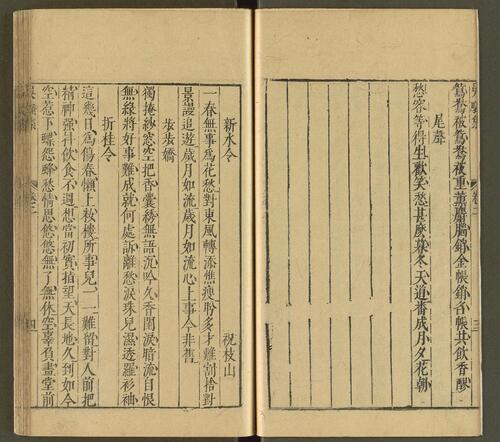 鴛鴦被鴛鴦夜重薰麝腦銷金帳銷金帳共飲香醪
尾聲
愁容等得生歡笑愁甚麼暮冬天道番成月夕花朝
新水令
祝枝山
一春無事爲花愁對東風轉添憔瘦盼多才難割捨對
景謾追遊歲月如流歲月如流心上事今非舊
步步嬌
獨掩紗窓空把香囊綉無語沉吟久香閨淚暗流自恨
無緣將好事難成就何處訴離愁淚珠兒濕透羅衫袖
折桂令
這幾日爲傷春懶上妝樓所事兒一一難留對人前把
精神強抖飲食不週想當初實指望天長地久到如今
空惹下蝶怨蜂愁情思悠悠悠悠無了無休空辜負畫堂前